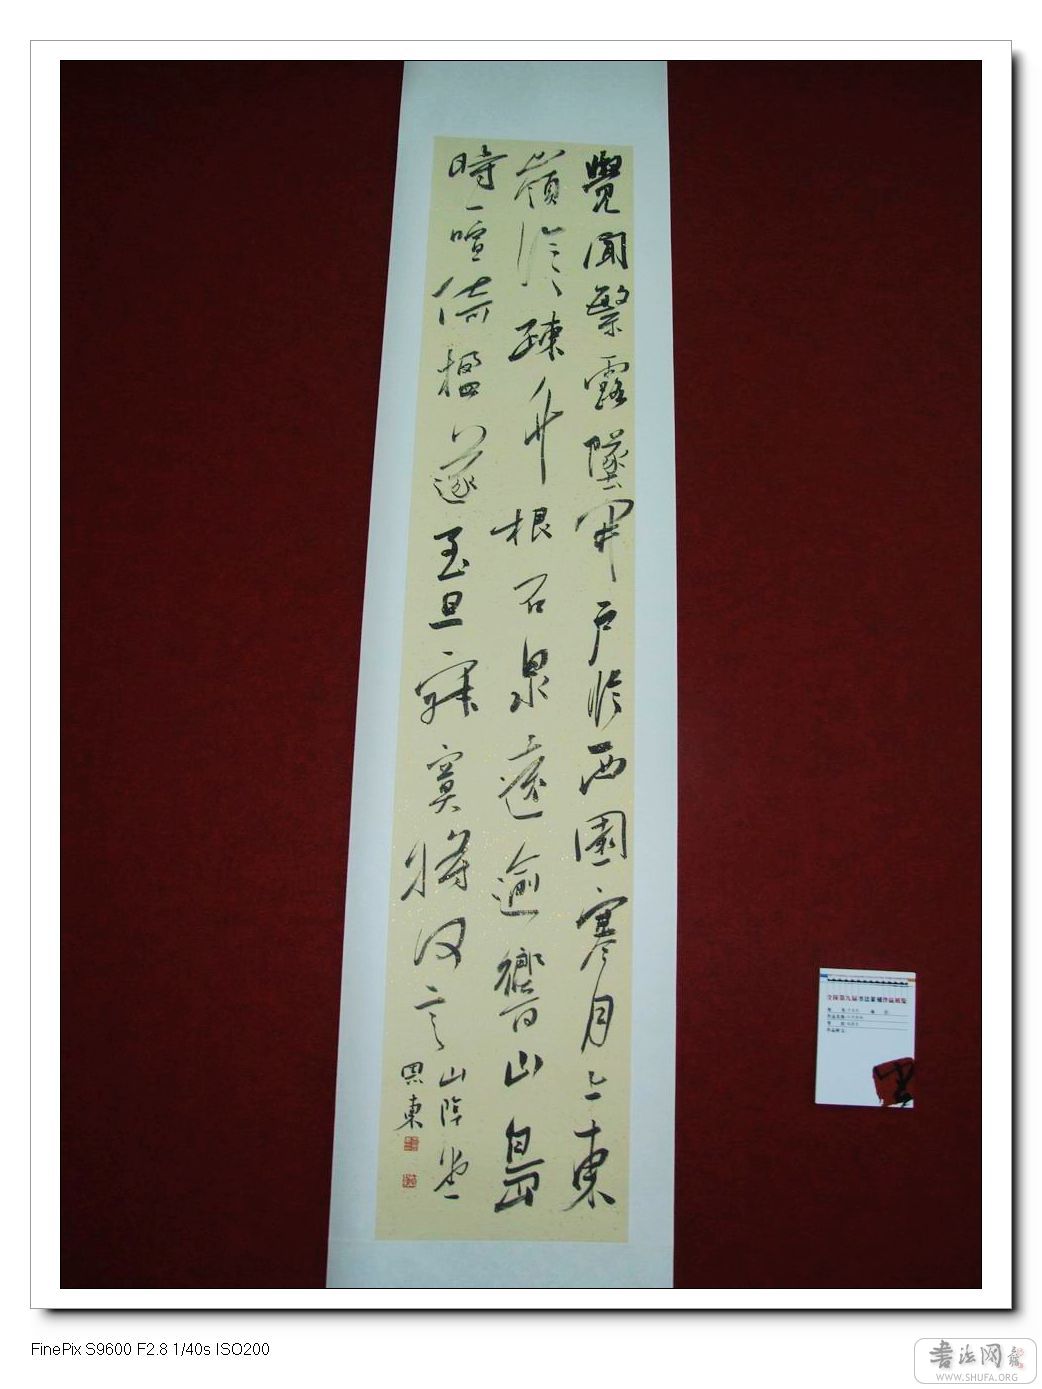 覺聞繁露墜開戶臨西園寒月上東
嶺泠泠疎竹根石泉遠逾響山鳥
時一喧倚楹遂至旦寂寞將何言
山陰
東
全国第九届书法篆刻作品展览
FinePix S9600 F2.8 1/40s ISO200
书法网
WWW.SHUFA.ORG